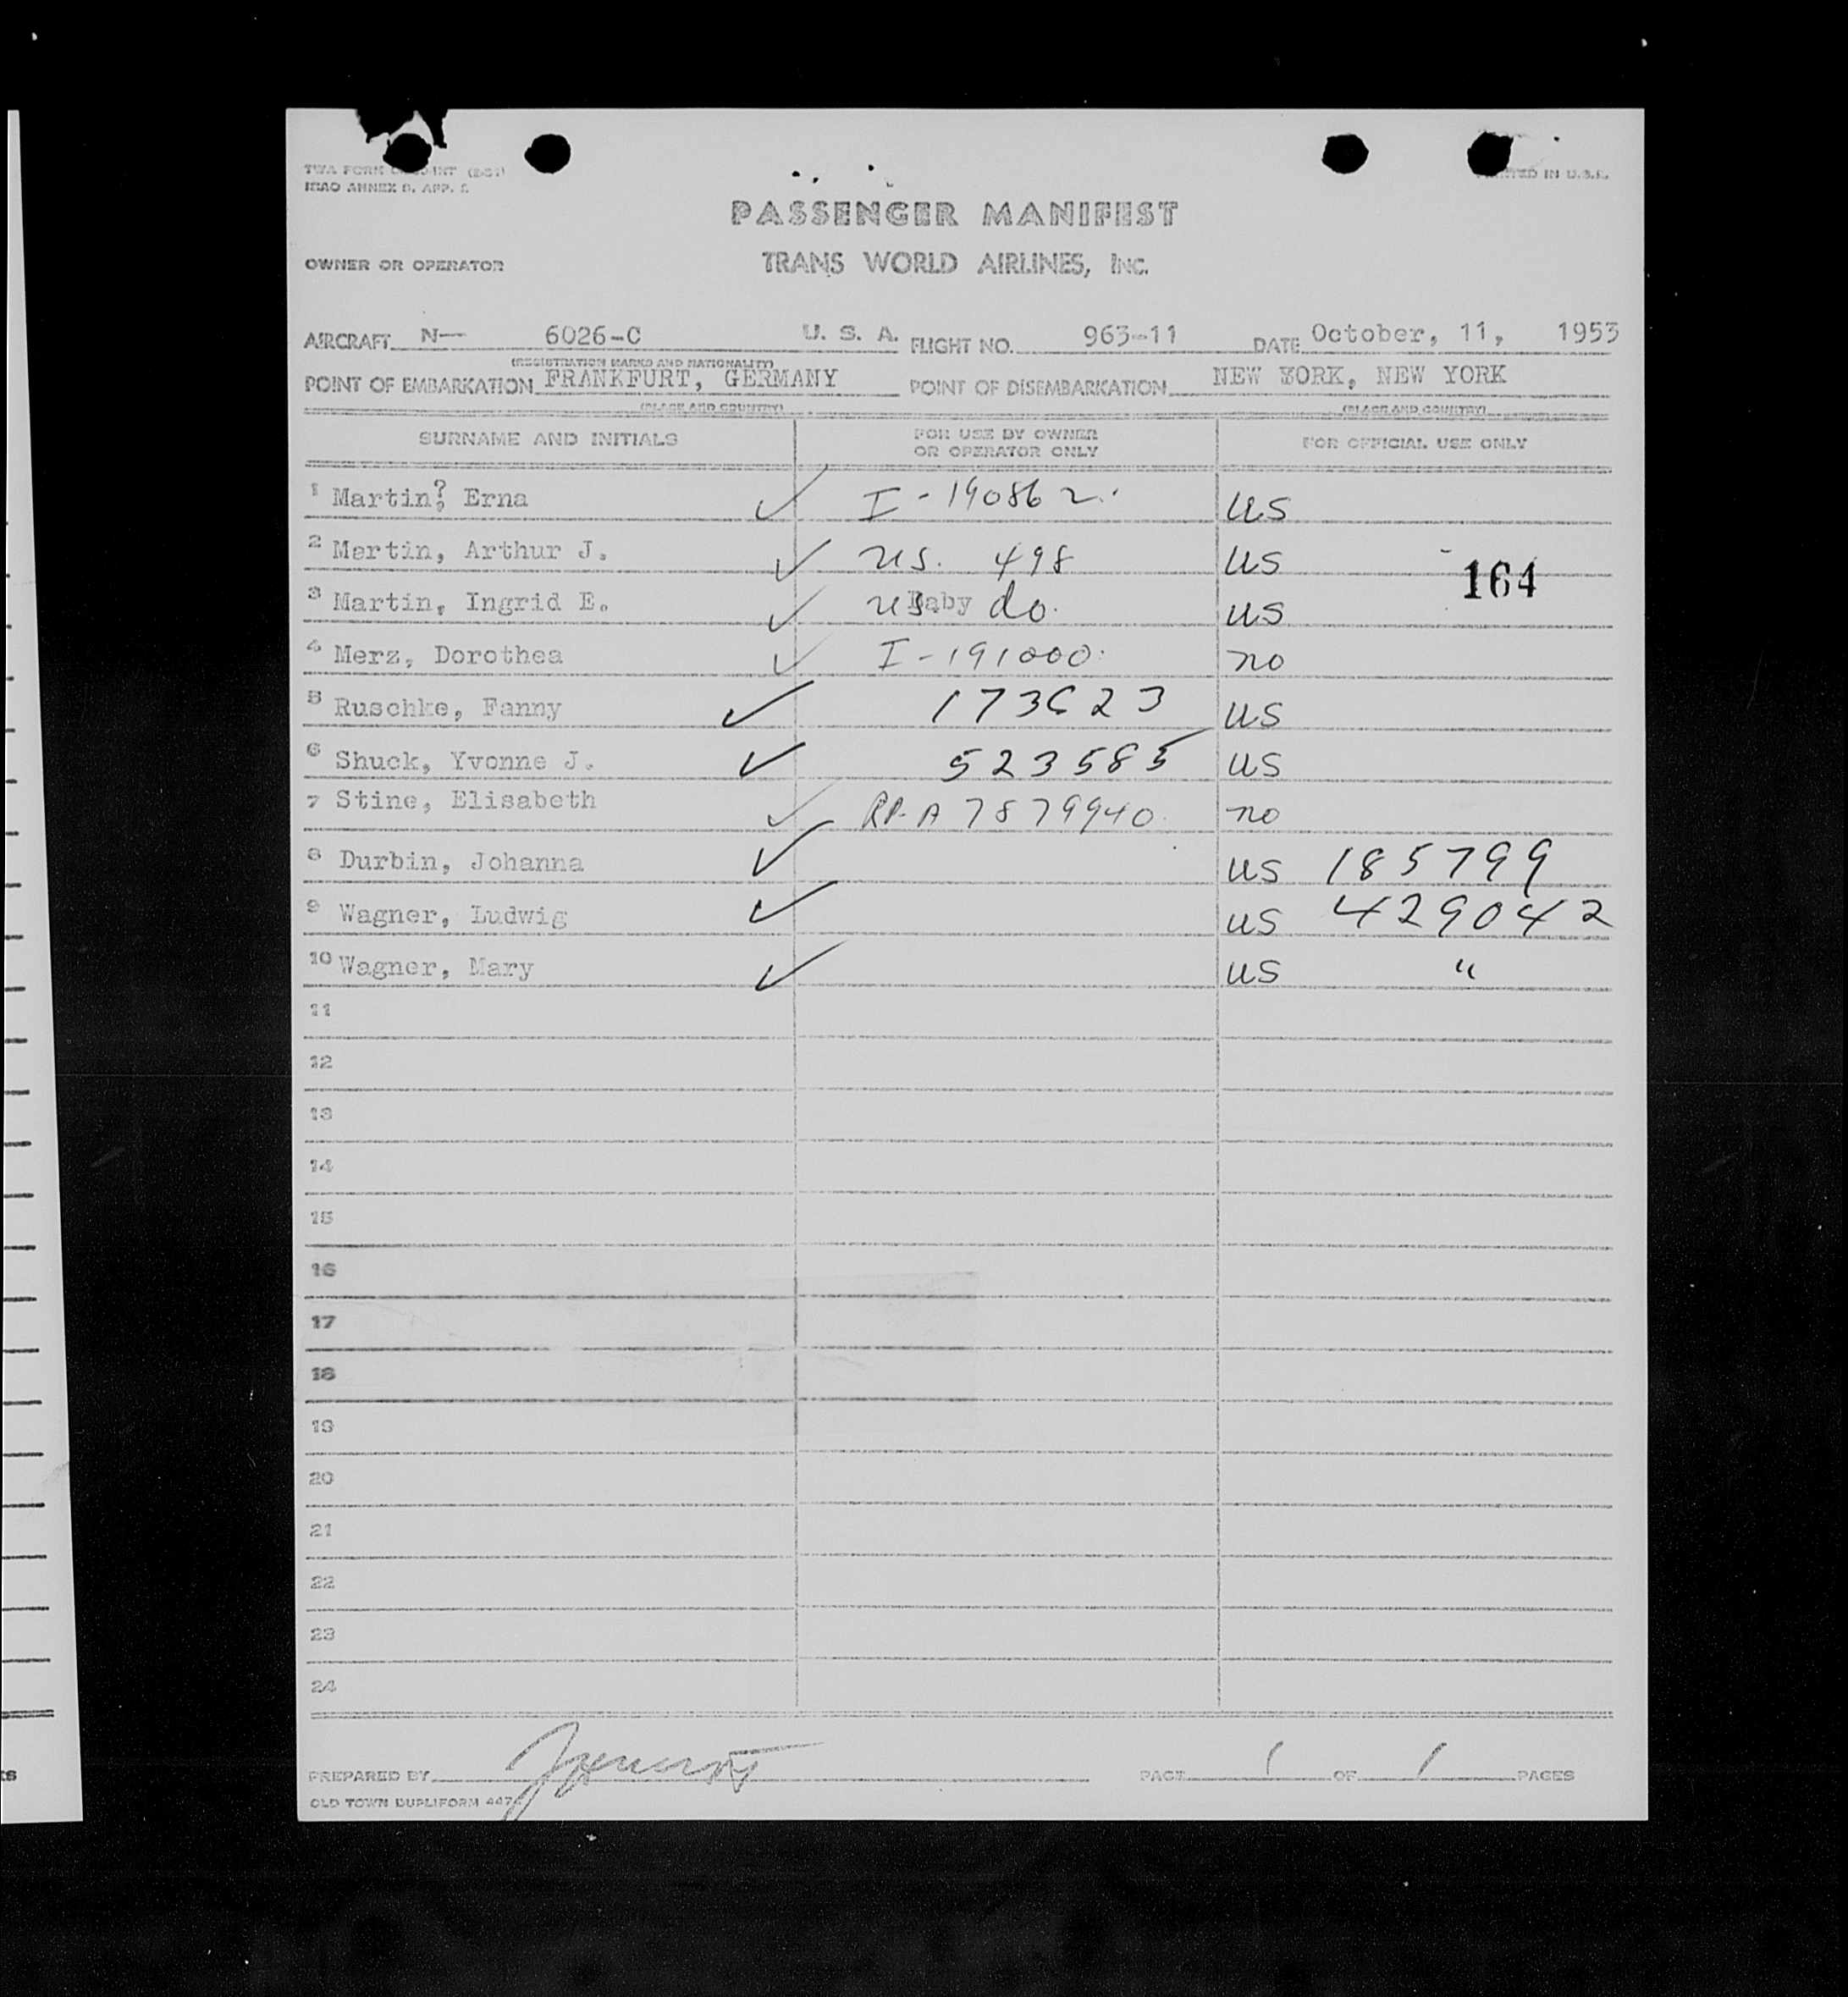 TWA FORM
ICAO ANNEX 9, APP. 5
PRINTED IN U.S.A.
PASSENGER MANIFEST
OWNER OR OPERATOR TRANS WORLD AIRLINES, INC.
AIRCRAFT N— 6026-C U. S. A. FLIGHT NO. 963-11 DATE October, 11, 1953
(REGISTRATION MARKS AND NATIONALITY)
POINT OF EMBARKATION FRANKFURT, GERMANY POINT OF DISEMBARKATION NEW YORK, NEW YORK
(PLACE AND COUNTRY) (PLACE AND COUNTRY)
SURNAME AND INITIALS FOR USE BY OWNER OR OPERATOR ONLY FOR OFFICIAL USE ONLY
1 Martin, Erna ✓ I-190862 US
2 Martin, Arthur J. ✓ US. 498 US
164
3 Martin, Ingrid E. ✓ US Baby do. US
4 Merz, Dorothea ✓ I-191000 no
5 Ruschke, Fanny ✓ 173623 US
6 Shuck, Yvonne J. ✓ 523585 US
7 Stine, Elisabeth ✓ RP-A7879940 no
8 Durbin, Johanna ✓ US 185799
9 Wagner, Ludwig ✓ US 429042
10 Wagner, Mary ✓ US "
11
12
13
14
15
16
17
18
19
20
21
22
23
24
PREPARED BY PAGE 1 OF 1 PAGES
OLD TOWN DUPLIFORM